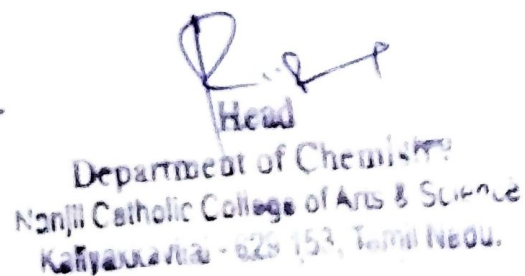 Head
Department of Chemistry
Nanjil Catholic College of Arts & Science
Kaliyakkavilai - 629 153, Tamil Nadu.